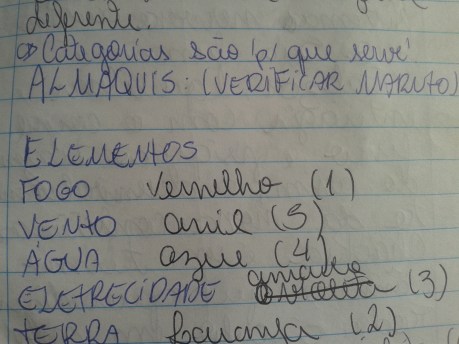 diferente.
Categorias são p/ que serve
ALMAQUIS: (VERIFICAR NARUTO)
ELEMENTOS
FOGO vermelho (1)
VENTO anil (5)
ÁGUA azul (4)
amarelo
ELETRECIDADE (3)
TERRA laranja (2)